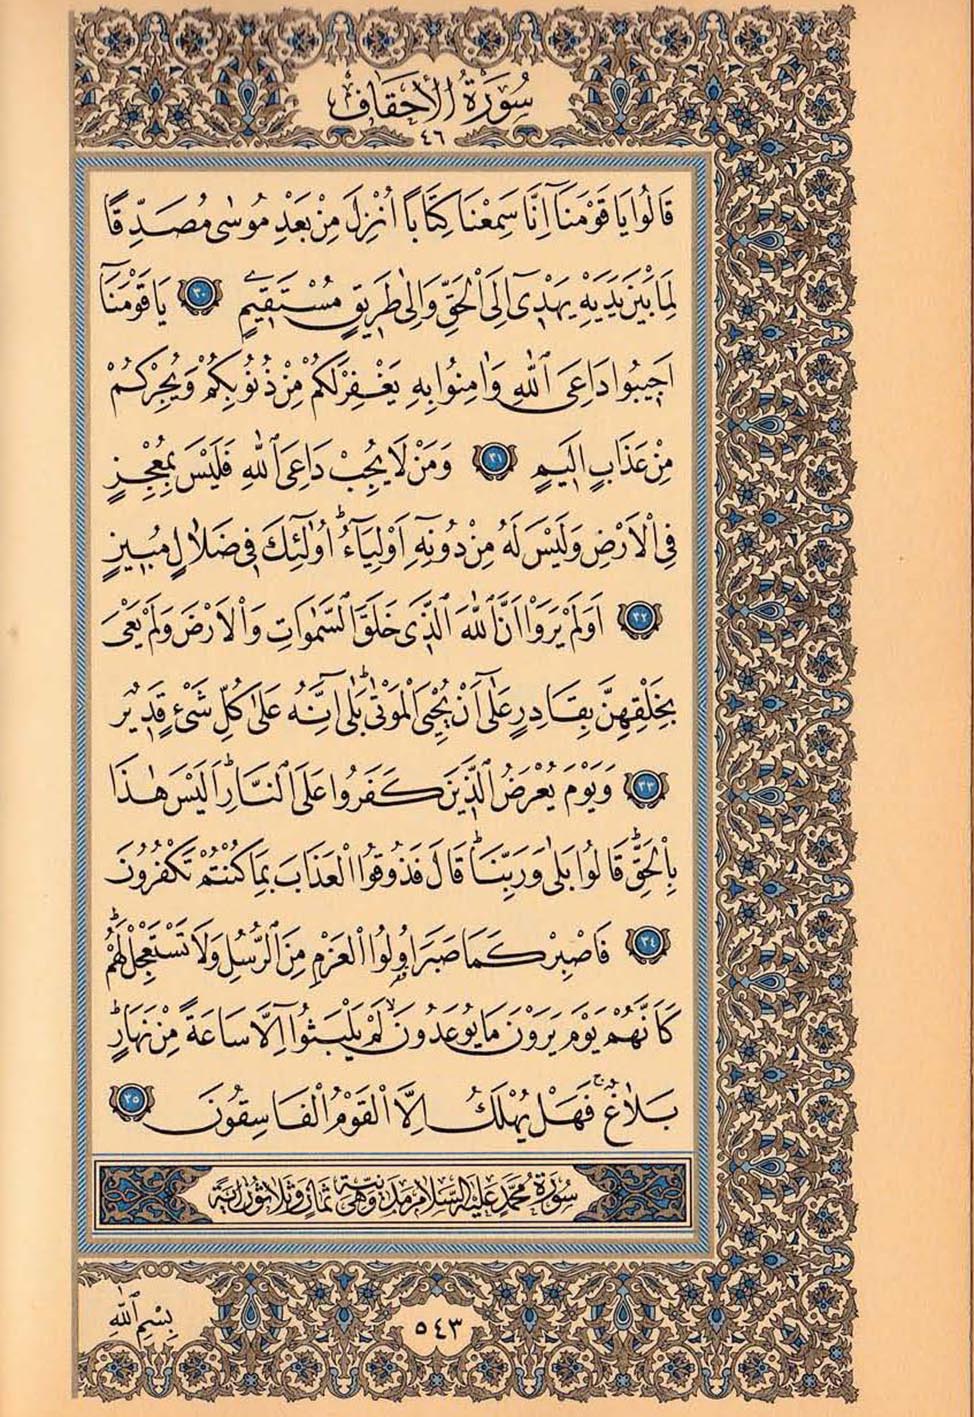 سُورَةُ الْاَحْقَافِ
٤٦
قَالُوا يَا قَوْمَنَٓا اِنَّا سَمِعْنَا كِتَابًا اُنْزِلَ مِنْ بَعْدِ مُوسٰى مُصَدِّقًا
لِمَا بَيْنَ يَدَيْهِ يَهْدٖٓى اِلَى الْحَقِّ وَاِلٰى طَرٖيقٍ مُسْتَقٖيمٍ ٣٠ يَا قَوْمَنَٓا
اَجٖيبُوا دَاعِىَ اللّٰهِ وَاٰمِنُوا بِهٖ يَغْفِرْ لَكُمْ مِنْ ذُنُوبِكُمْ وَيُجِرْكُمْ
مِنْ عَذَابٍ اَلٖيمٍ ٣١ وَمَنْ لَا يُجِبْ دَاعِىَ اللّٰهِ فَلَيْسَ بِمُعْجِزٍ
فِى الْاَرْضِ وَلَيْسَ لَهُ مِنْ دُونِهٖٓ اَوْلِيَٓاءُۜ اُولٰٓئِكَ فٖى ضَلَالٍ مُبٖينٍ
٣٢ اَوَلَمْ يَرَوْا اَنَّ اللّٰهَ الَّذٖى خَلَقَ السَّمٰوَاتِ وَالْاَرْضَ وَلَمْ يَعْىَ
بِخَلْقِهِنَّ بِقَادِرٍ عَلٰٓى اَنْ يُحْيِىَ الْمَوْتٰىۜ بَلٰٓى اِنَّهُ عَلٰى كُلِّ شَیْءٍ قَدٖيرٌ
٣٣ وَيَوْمَ يُعْرَضُ الَّذٖينَ كَفَرُوا عَلَى النَّارِۜ اَلَيْسَ هٰذَا
بِالْحَقِّۜ قَالُوا بَلٰى وَرَبِّنَاۜ قَالَ فَذُوقُوا الْعَذَابَ بِمَا كُنْتُمْ تَكْفُرُونَ
٣٤ فَاصْبِرْ كَمَا صَبَرَ اُولُوا الْعَزْمِ مِنَ الرُّسُلِ وَلَا تَسْتَعْجِلْ لَهُمْۜ
كَاَنَّهُمْ يَوْمَ يَرَوْنَ مَا يُوعَدُونَۙ لَمْ يَلْبَثُٓوا اِلَّا سَاعَةً مِنْ نَهَارٍۜ
بَلَاغٌۚ فَهَلْ يُهْلَكُ اِلَّا الْقَوْمُ الْفَاسِقُونَ ٣٥
سُورَةُ مُحَمَّدٍ عَلَيْهِ السَّلَامُ مَدَنِيَّةٌ وَهِىَ ثَمَانٍ وَثَلَاثُونَ اٰيَةً
٥٤٣
بِسْمِ اللّٰهِ